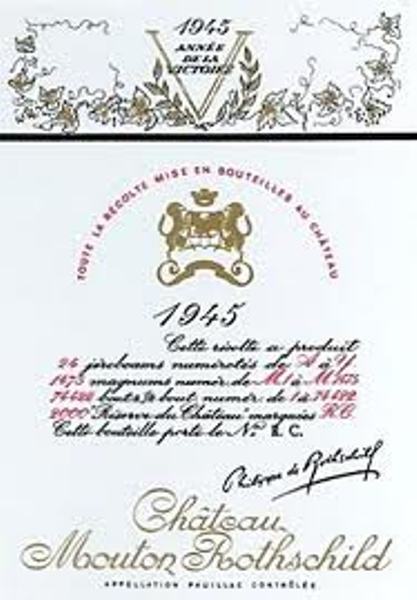 1945
ANNÉE
DE LA
VICTOIRE
TOUTE LA RÉCOLTE MISE EN BOUTEILLES AU CHÂTEAU
1945
Cette récolte a produit
24 jéroboams numérotés de A à Y
1475 magnums numér. de M1 à M1475
74422 bout. & ½ bout. numér. de 1 à 74422
2000 "Réserve du Château" marquées R.C.
Cette bouteille porte le Nº R. C.
Philippe de Rothschild
Château
Mouton Rothschild
APPELLATION PAUILLAC CONTRÔLÉE